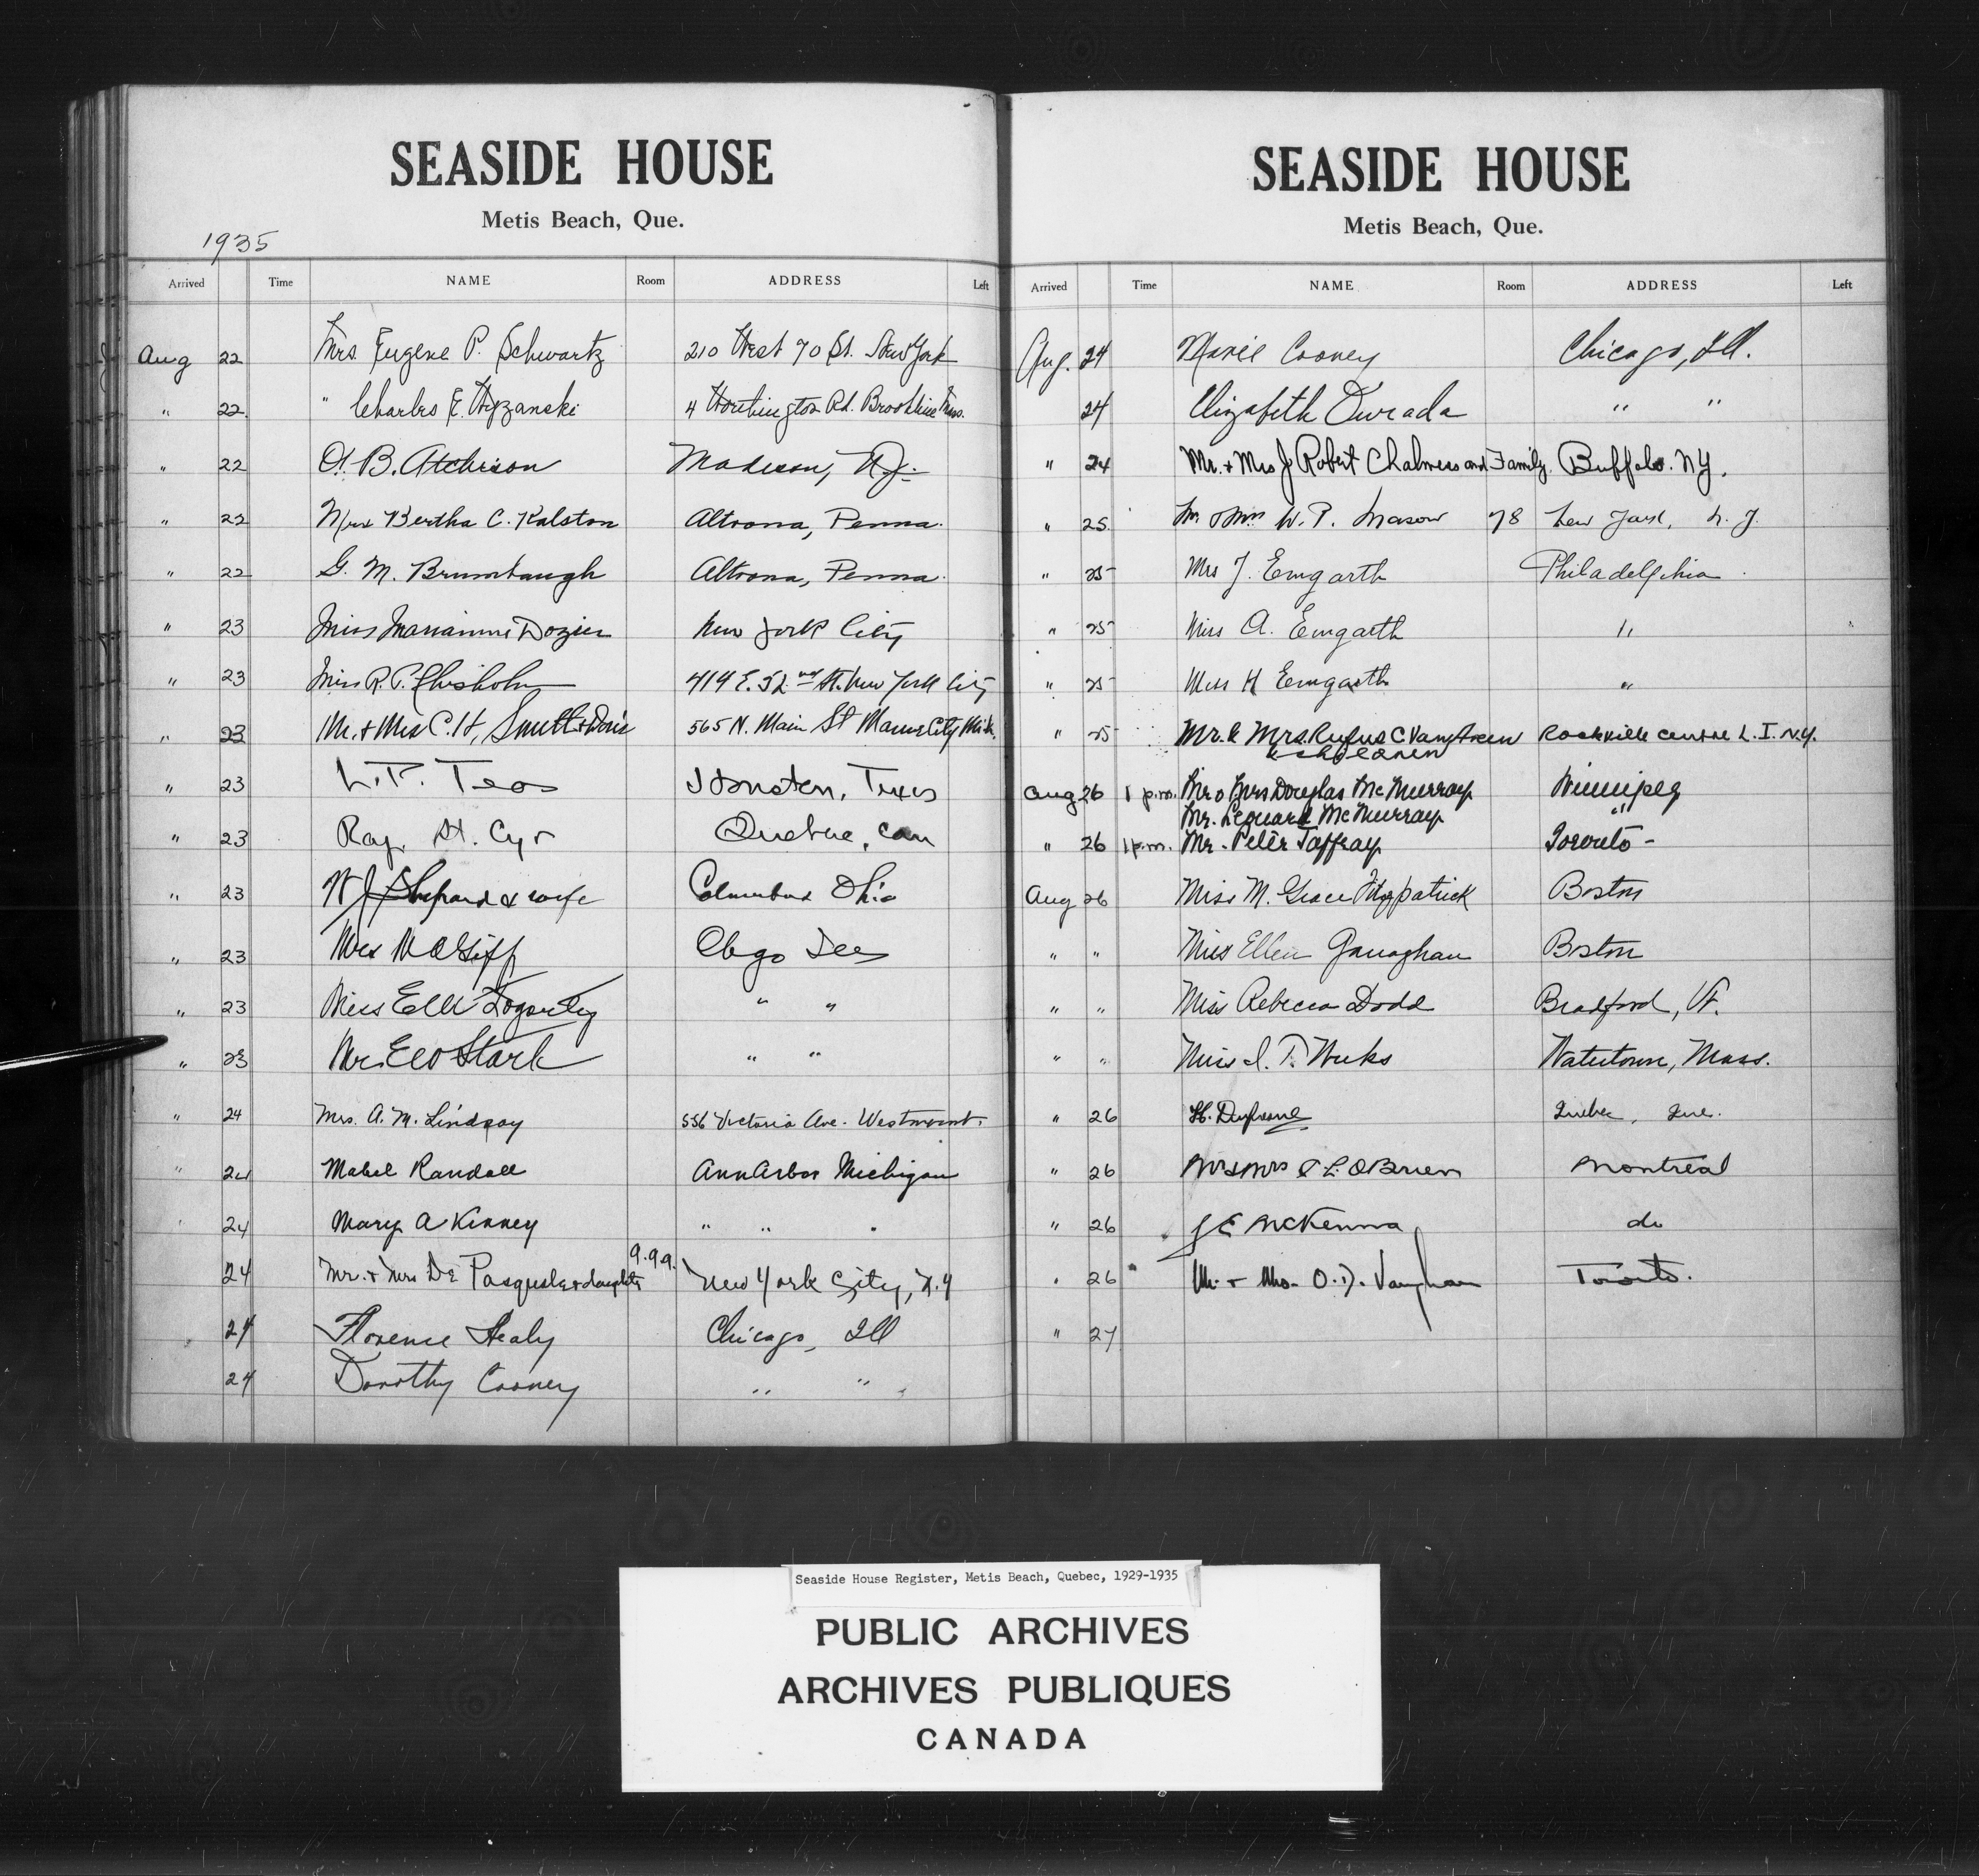 SEASIDE HOUSE
Metis Beach, Que.
1935
Arrived Time NAME Room ADDRESS Left
Aug 22 Mrs. Eugene P. Schwartz 210 West 70 St. New York
" 22. " Charles E. Wyzanski 4 Worthington Rd. Brookline Mass.
" 22 B. Atchison Madison, N.J.
" 22 Mrs Bertha C. Ralston Altoona, Penna.
" 22 G. M. Brumbaugh Altoona, Penna.
" 23 Miss Marianne Dozier New York City
" 23 Miss R. P. Chisholm 419 E. 52 nd St. New York City
" 23 Mr. & Mrs C. H. Smith & Doris 565 N. Main St Marine City Mich.
" 23 L. P. Teas Houston, Texas
" 23 Ray. St. Cyr Quebec, Can
" 23 W J Shepard & wife Columbus Ohio
" 23 Mrs Chgo Ills
" 23 Miss Ella Fogarty " "
" 23 Stark " "
" 24 Mrs. A. M. Lindsay 556 Victoria Ave. Westmount.
" 24 Mabel Randall Ann Arbor Michigan
24 Mary A Kinney " "
24 Mr. & Mrs De Pasquale & daughter 9.99. New York City, N.Y
24 Florence Healy Chicago, Ill
24 Dorothy Cooney " "
SEASIDE HOUSE
Metis Beach, Que.
Arrived Time NAME Room ADDRESS Left
Aug. 24 Marie Cooney Chicago, Ill.
24 Elizabeth Durada " "
" 24 Mr. & Mrs J. Robert Chalmers and Family. Buffalo. N.Y.
" 25. Mr & Mrs W. P. Mason 78 New York, N. Y.
" 25 Mrs J. Emgarth Philadelphia
" 25 Miss A. Emgarth "
" 25 Miss H Emgarth "
" 25 Mr. & Mrs. Rufus C Rockville Centre L. I. N.Y.
& children
Aug 26 1 p.m. Mr & Mrs Douglas McMurray Winnipeg
Mr. Leonard McMurray "
" 26 1 p.m. Mr. Peter Jaffray Toronto -
Aug 26 Miss M. Grace Fitzpatrick Boston
" " Miss Ellen Boston
" " Miss Rebecca Dodd Bradford, Vt.
" " Miss I. T. Weeks Watertown, Mass.
" 26 H. Dufresne Quebec, Que.
" 26 Mr & Mrs L. O'Brien Montreal
" 26 J E McKenna do
" 26 Mr. & Mrs. O. D. Vaughan Toronto.
" 27
Seaside House Register, Metis Beach, Quebec, 1929-1935
PUBLIC ARCHIVES
ARCHIVES PUBLIQUES
CANADA